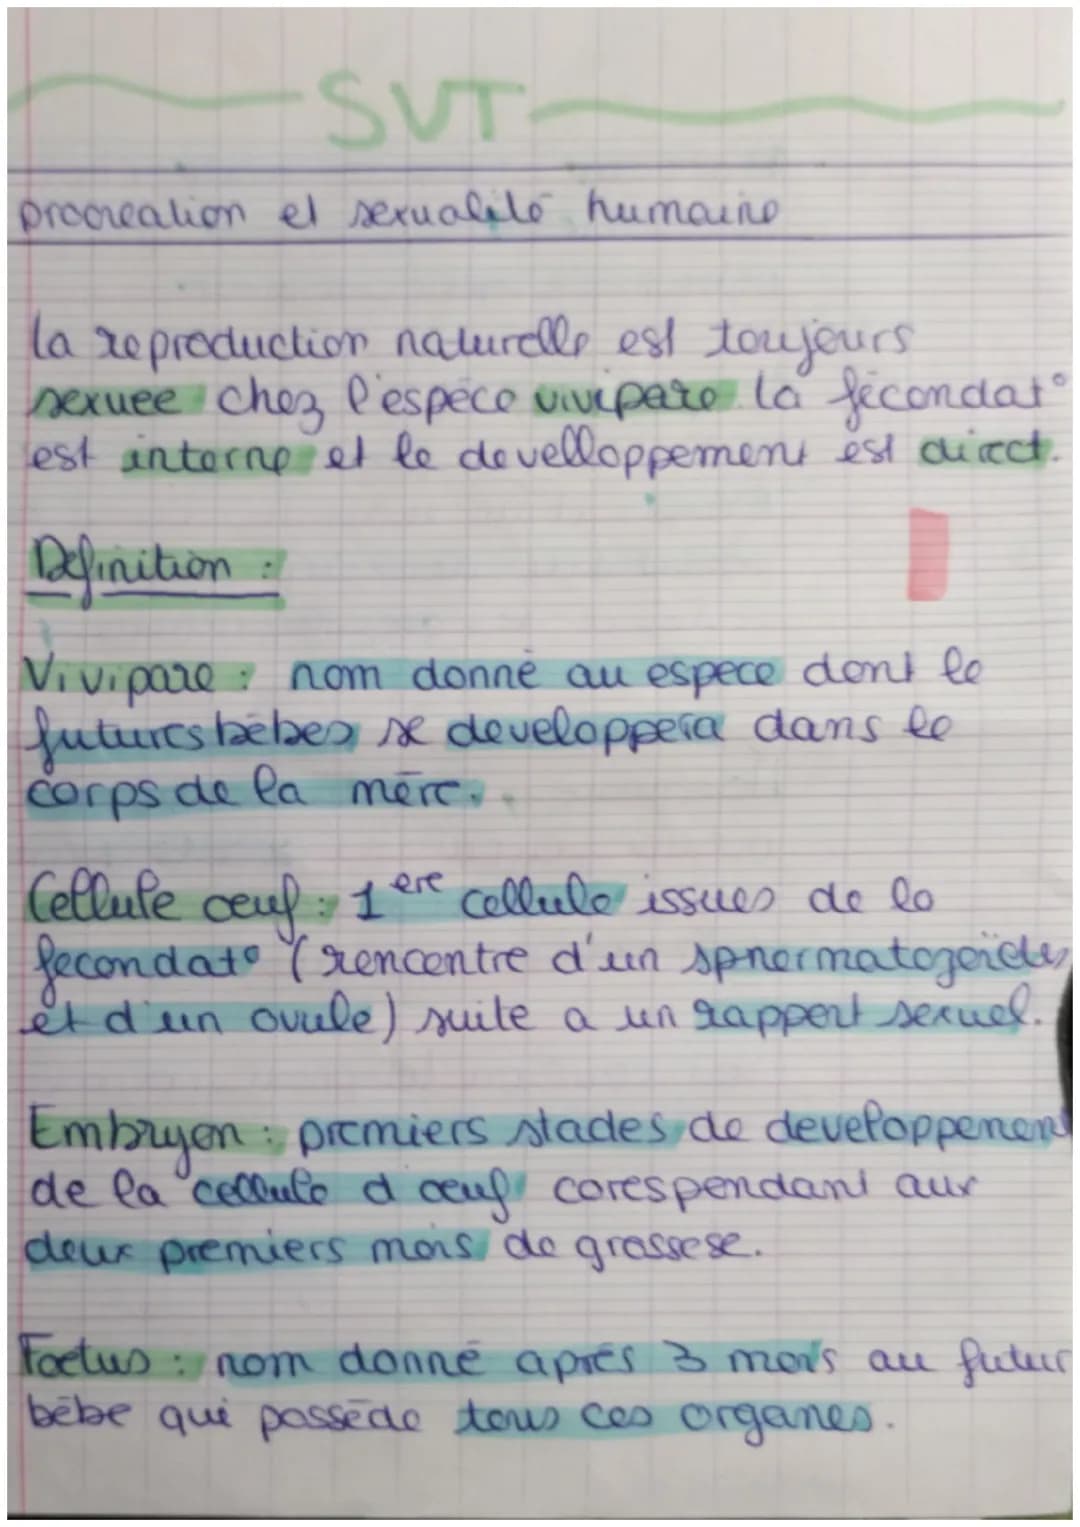 SVT
procreation et sexualité humaine
la reproduction naturelle est toujours
sexuee chez l'espéce vivipare la fécondat°
est interne et le develloppement est direct.
Définition :
Vivipare : nom donné au espece dont le
futures bébes se developpera dans le
corps de la mère.
Cellule oeuf : 1ere cellule issues de la
fecondat° (rencontre d'un spnermatozoïdes
et d'un ovule) suite a un rapport sexuel.
Embryon : premiers stades de developpement
de la cellule d oeuf corespondant aux
deux premiers mois de grossese.
Foetus : nom donné aprés 3 mois au futur
bébe qui posséde tous ces organes.